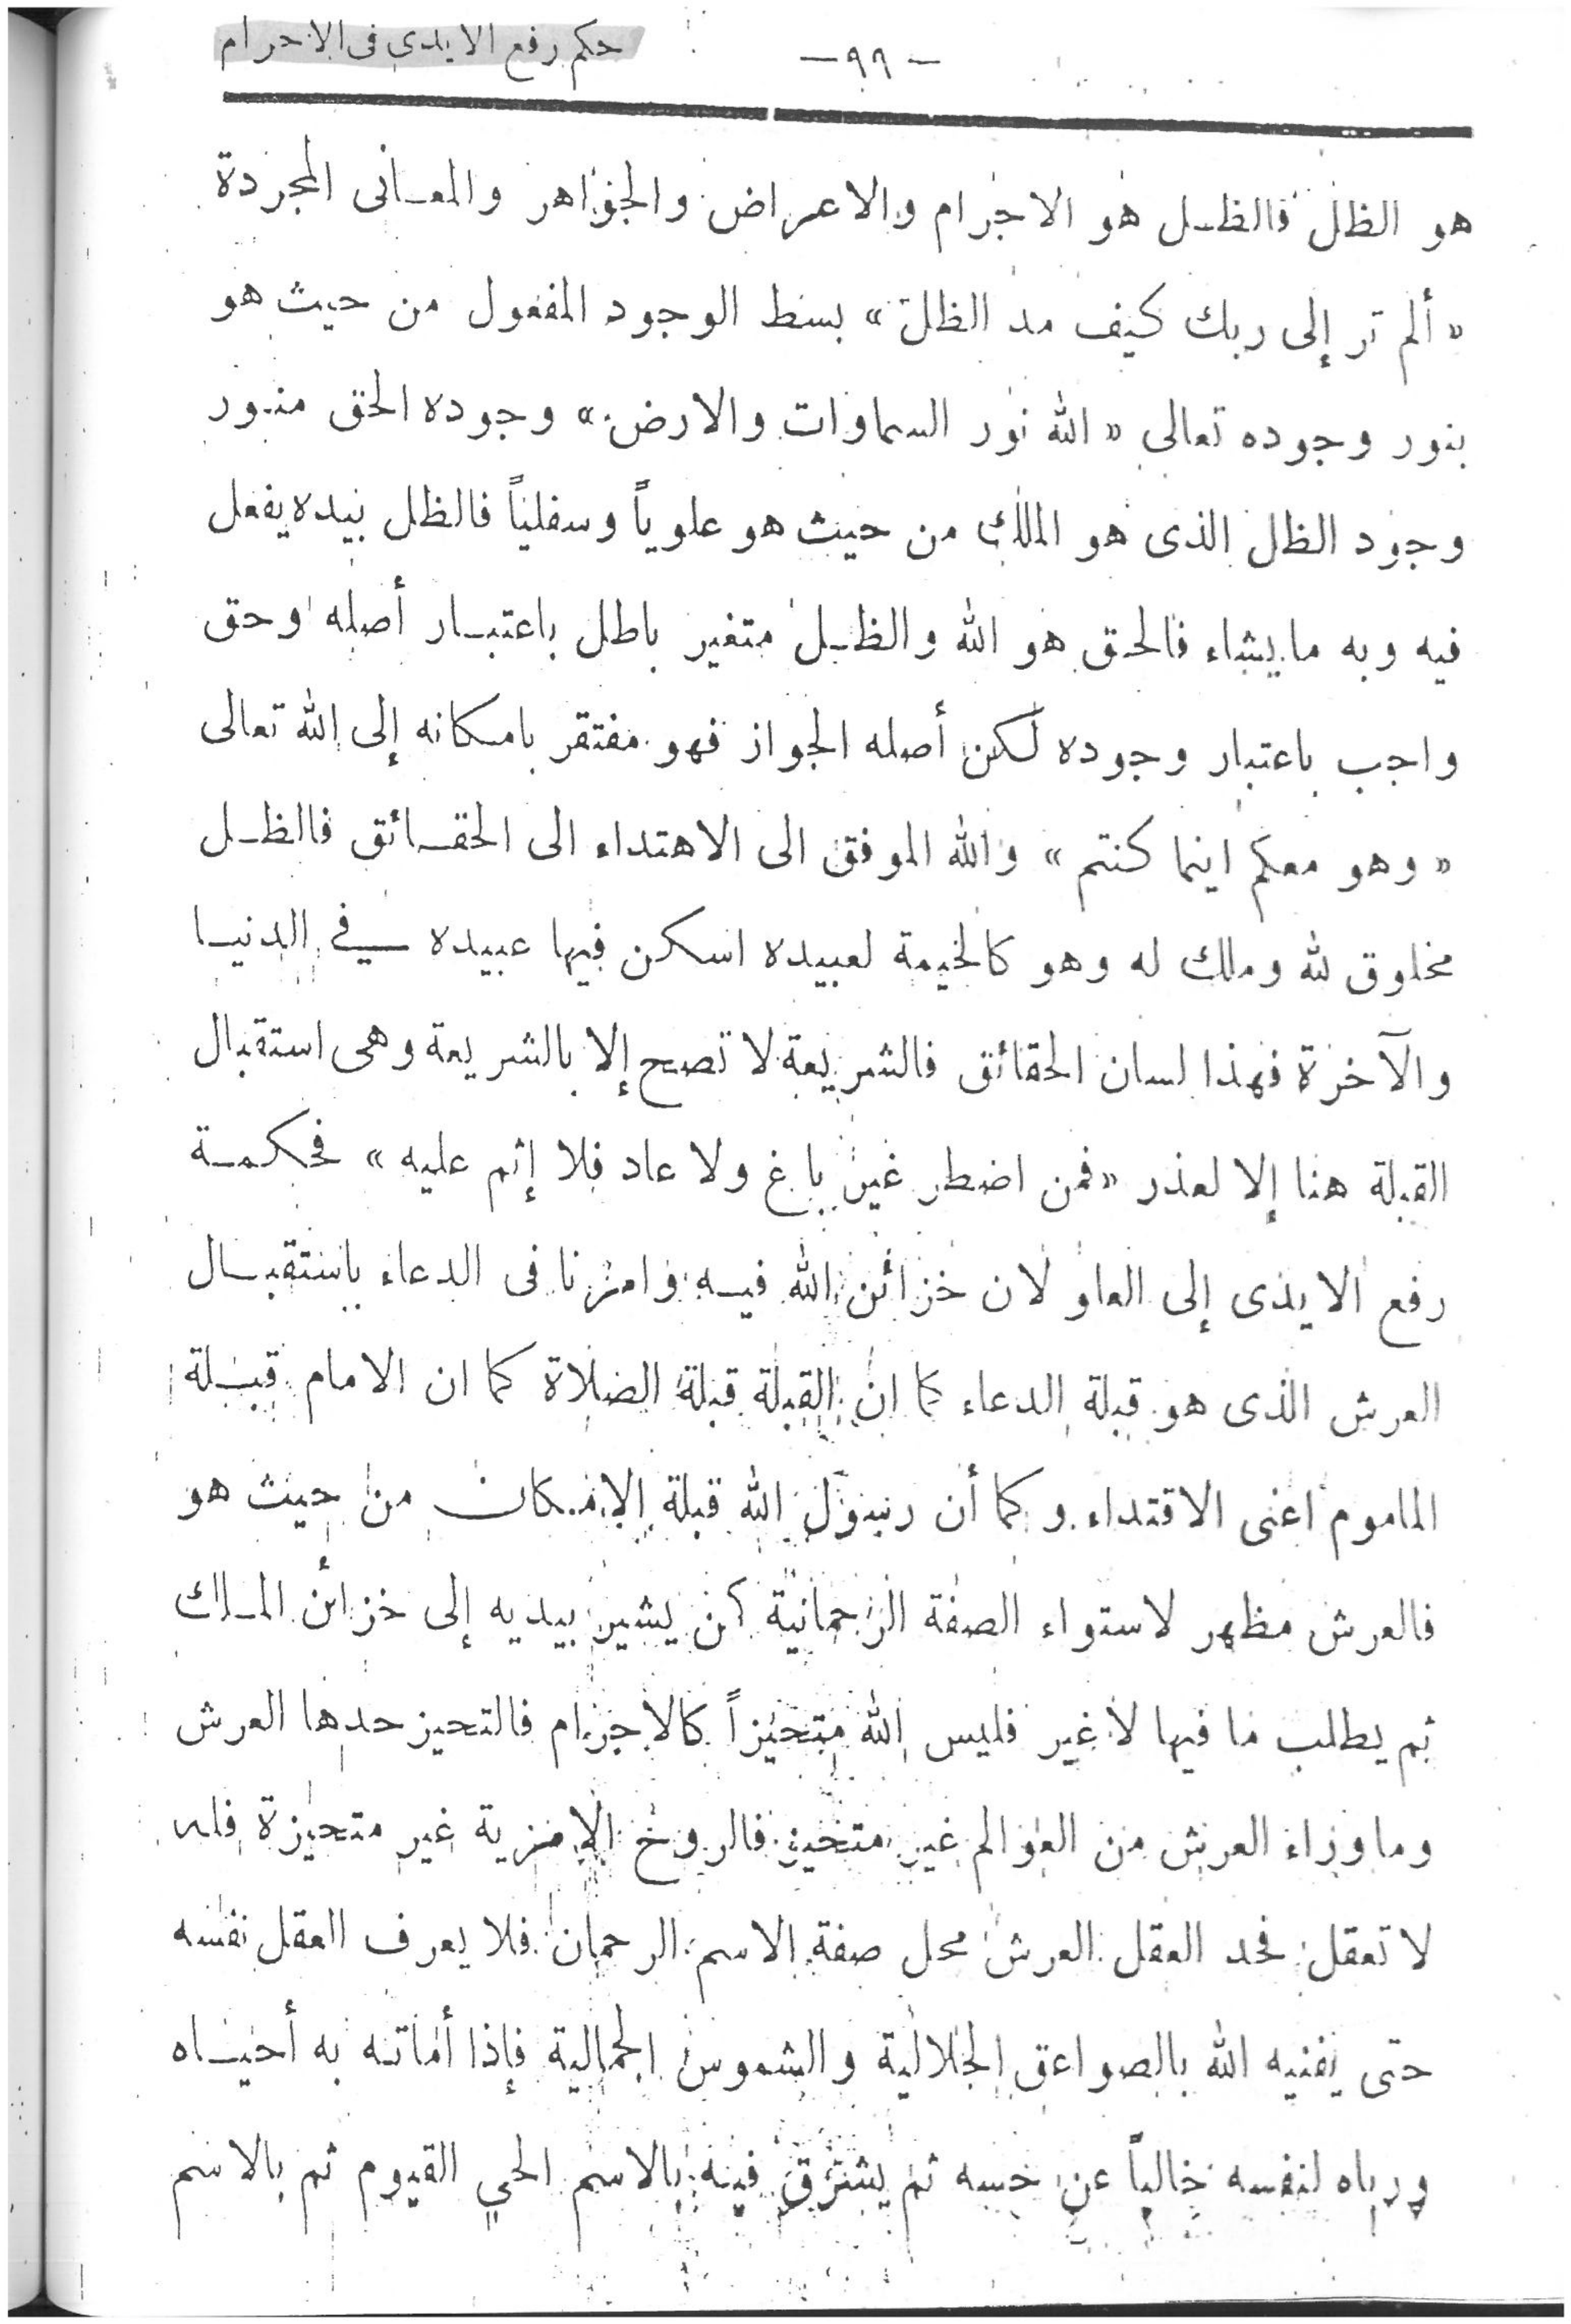 حكم رفع الايدى فى الاحرام
— ٩٩ —
هو الظل فالظل هو الاجرام والاعراض والجواهر والمعانى المجردة
« ألم تر إلى ربك كيف مد الظل » بسط الوجود المفعول من حيث هو
بنور وجوده تعالى « الله نور السماوات والارض » وجوده الحق منور
وجود الظل الذى هو الملك من حيث هو علوياً وسفلياً فالظل بيده يفعل
فيه وبه ما يشاء فالحق هو الله والظل متغير باطل باعتبار أصله وحق
واجب باعتبار وجوده لكن أصله الجواز فهو مفتقر بامكانه إلى الله تعالى
« وهو معكم اينما كنتم » والله الموفق الى الاهتداء الى الحقائق فالظل
مخلوق لله وملك له وهو كالخيمة لعبيده اسكن فيها عبيده في الدنيا
والآخرة فهذا لسان الحقائق فالشريعة لا تصح إلا بالشريعة وهى استقبال
القبلة هنا إلا لعذر « فمن اضطر غير باغ ولا عاد فلا إثم عليه » فحكمة
رفع الايدى إلى العلو لان خزائن الله فيه وامرنا فى الدعاء باستقبال
العرش الذى هو قبلة الدعاء كما ان القبلة قبلة الصلاة كما ان الامام قبلة
الماموم اعنى الاقتداء وكما أن رسول الله قبلة الامكان من حيث هو
فالعرش مظهر لاستواء الصفة الرحمانية كمن يشير بيديه إلى خزائن الملك
ثم يطلب ما فيها لا غير فليس الله متحيزاً كالاجرام فالتحيز حدها العرش
وما وراء العرش من العوالم غير متحيز فالروح الامرية غير متحيزة فله
لا تعقل فحد العقل العرش محل صفة الاسم الرحمان فلا يعرف العقل نفسه
حتى يفنيه الله بالصواعق الجلالية والشموس الجمالية فإذا أماته به أحياه
ورباه لنفسه خالياً عن حسه ثم يشرق فيه بالاسم الحي القيوم ثم بالاسم